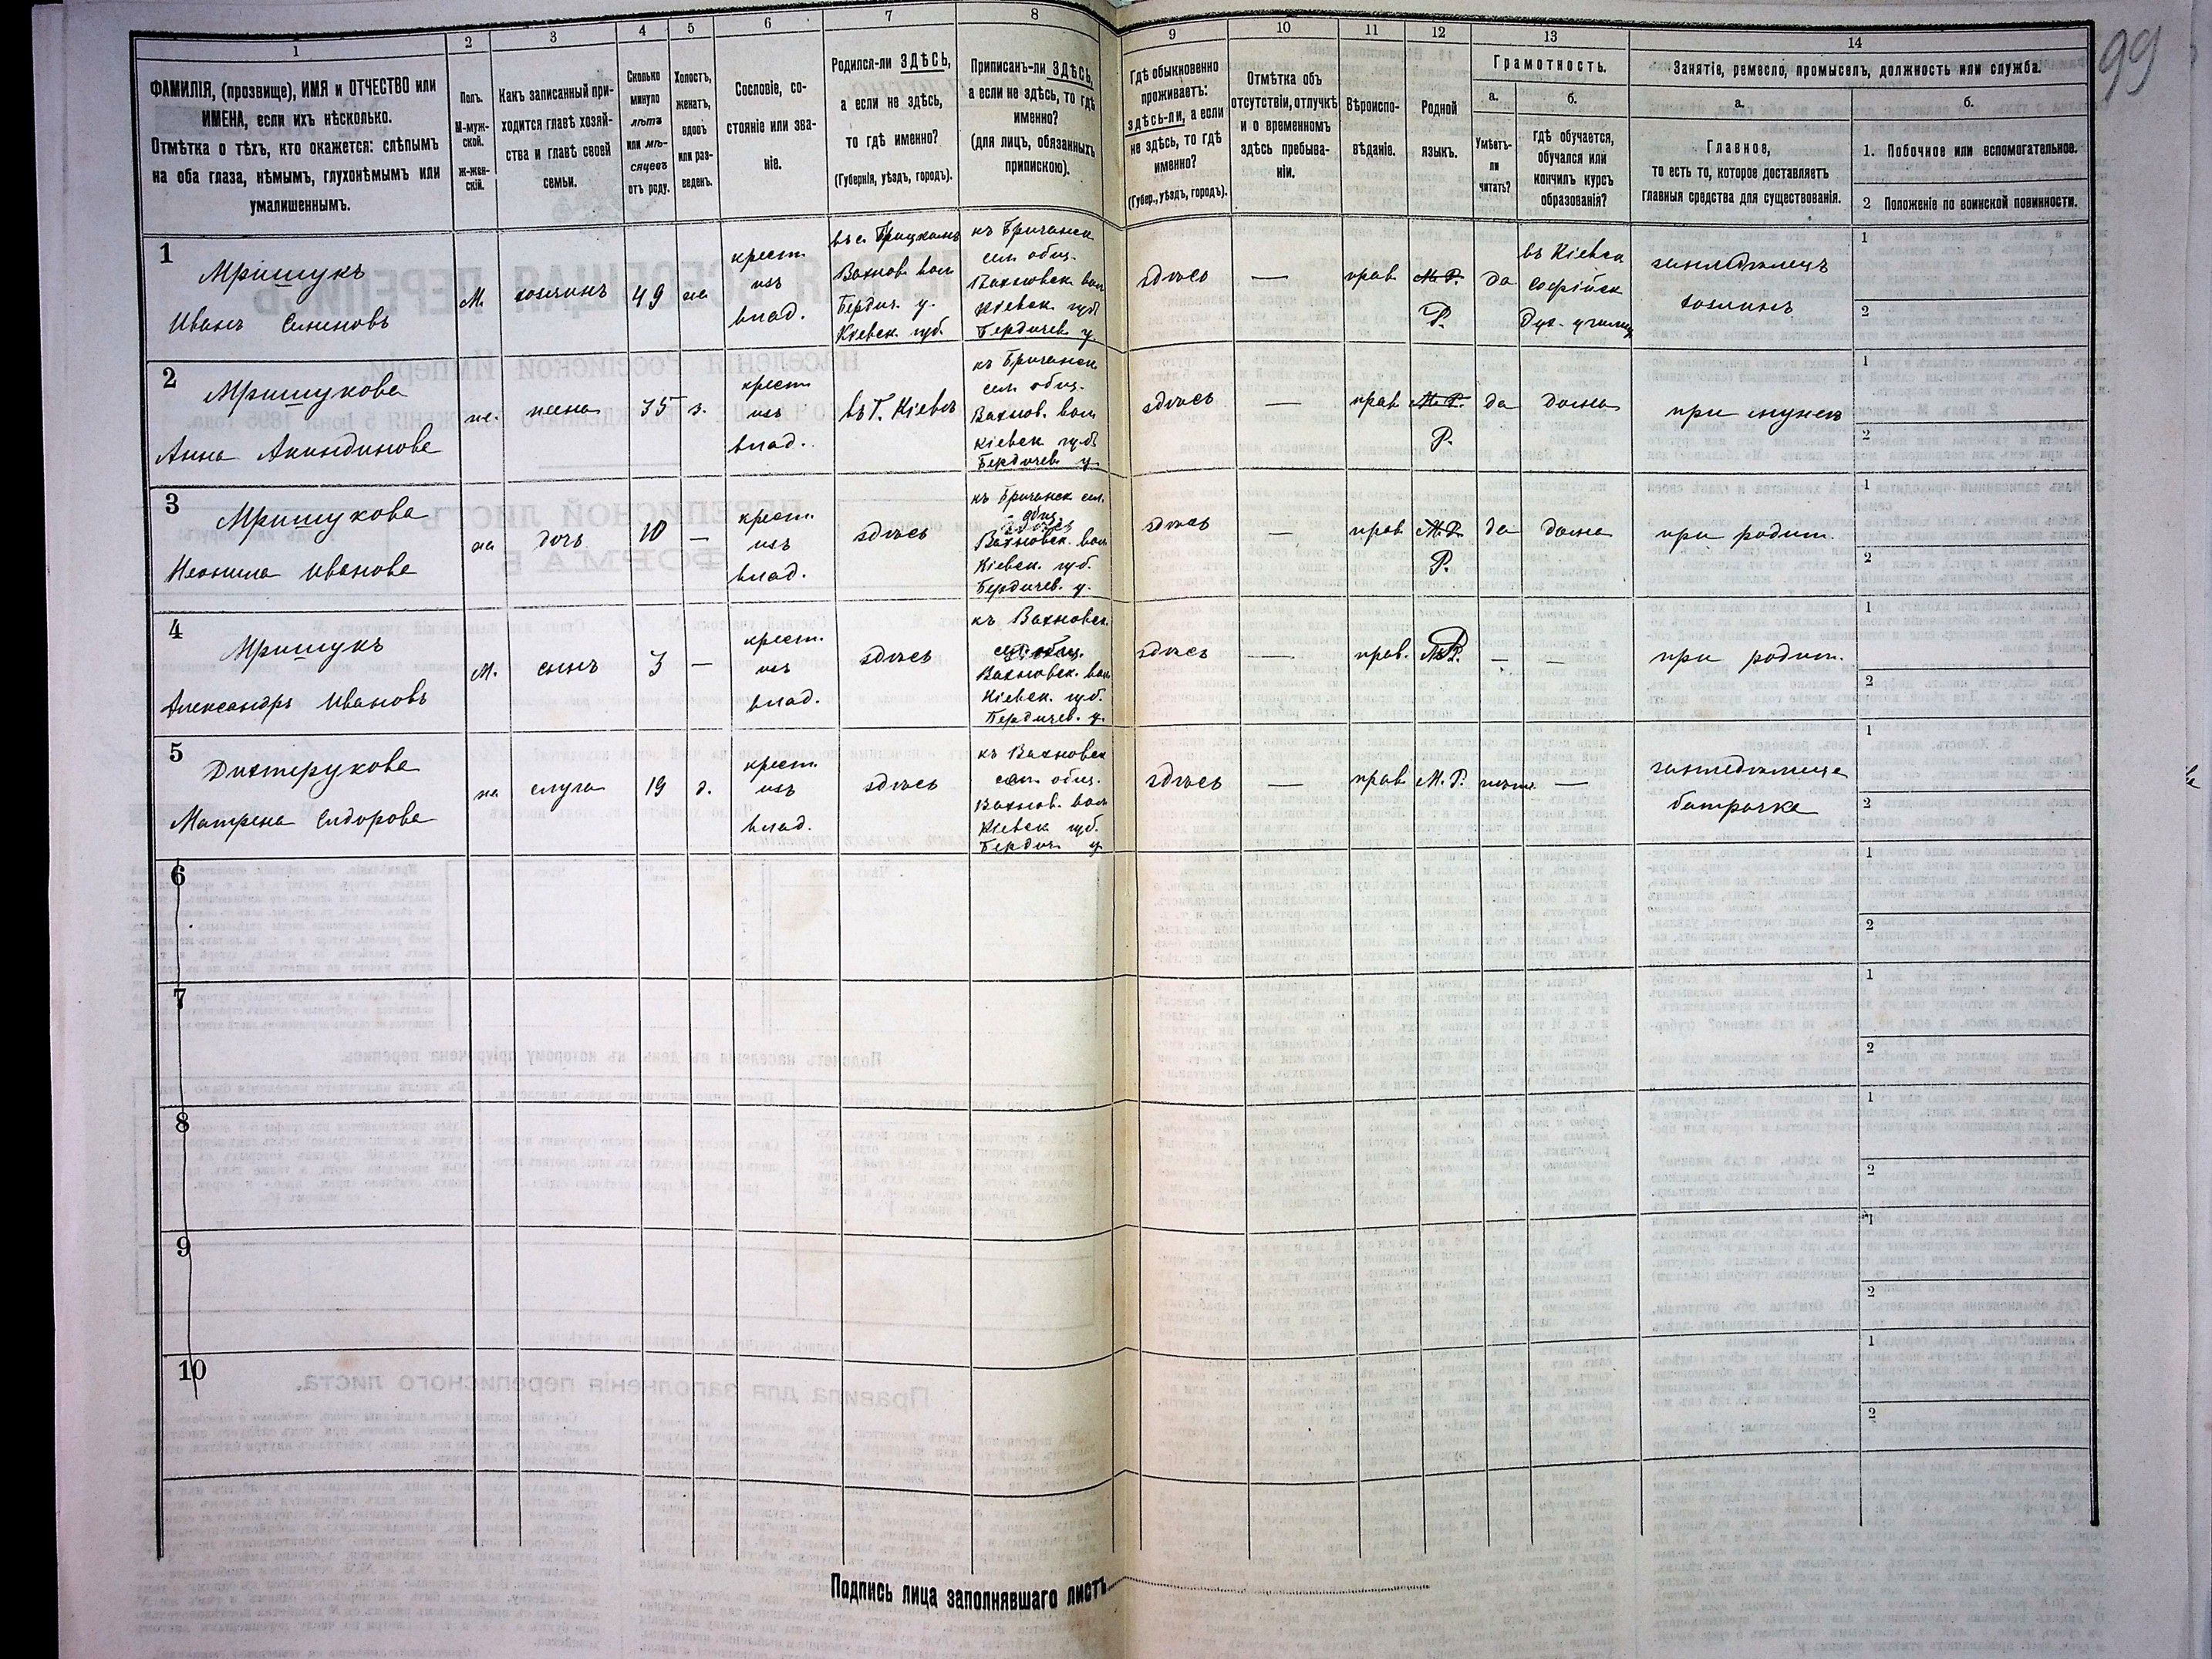 99
1
2
3
4
5
6
7
8
9
10
11
12
13
14
ФАМИЛІЯ, (прозвище), ИМЯ и ОТЧЕСТВО или
ИМЕНА, если ихъ нѣсколько.
Отмѣтка о тѣхъ, кто окажется: слѣпымъ
на оба глаза, нѣмымъ, глухонѣмымъ или
умалишеннымъ.
Полъ.
М-муж-
ской.
Ж-жен-
скій.
Какъ записанный при-
ходится главѣ хозяй-
ства и главѣ своей
семьи.
Сколько
минуло
лѣтъ
или мѣ-
сяцевъ
отъ роду.
Холостъ,
женатъ,
вдовъ
или раз-
веденъ.
Сословіе, со-
стояніе или зва-
ніе.
Родился-ли ЗДѢСЬ,
а если не здѣсь,
то гдѣ именно?
(Губернія, уѣздъ, городъ).
Приписанъ-ли ЗДѢСЬ,
а если не здѣсь, то гдѣ
именно?
(для лицъ, обязанныхъ
припискою).
Гдѣ обыкновенно
проживаетъ:
здѣсь-ли, а если
не здѣсь, то гдѣ
именно?
(Губер., уѣздъ, городъ).
Отмѣтка объ
отсутствіи, отлучкѣ
и о временномъ
здѣсь пребыва-
ніи.
Вѣроиспо-
вѣданіе.
Родной
языкъ.
Грамотность.
а.
Умѣетъ-
ли
читать?
б.
гдѣ обучается,
обучался или
кончилъ курсъ
образованія?
Занятіе, ремесло, промыселъ, должность или служба.
а.
Главное,
то есть то, которое доставляетъ
главныя средства для существованія.
б.
1. Побочное или вспомогательное.
2 Положеніе по воинской повинности.
1
Мришукъ
Иванъ
М.
хозяинъ
49
же
крест.
изъ
влад.
Бердич. у.
Кіевск. губ.
Кіевск. губ.
Бердичев. у.
здѣсь
—
прав.
М. Р.
Р.
да
въ Кіевск
Софійск
Дух. училищ
земледѣлецъ
хозяинъ
1
2
2
Мришукова
Анна Акиндинова
же.
жена
35
з.
крест.
изъ
влад.
въ Г. Кіевѣ
сел. общ.
Вахнов. вол.
Кіевск. губ.
Бердичев. у.
здѣсь
—
прав
М. Р.
Р.
да
дома
при мужѣ
1
2
3
Мришукова
Неонила Иванова
же
дочь
10
—
крест.
изъ
влад.
здѣсь
Вахновск. вол.
Кіевск. губ.
Бердичев. у.
здѣсь
—
прав
М. Р.
Р.
да
дома
при родит.
1
2
4
Мришукъ
Александръ Ивановъ
М.
сынъ
3
—
крест.
изъ
влад.
здѣсь
къ Вахновск.
Вахновск. вол.
Кіевск. губ.
Бердичев. у.
здѣсь
—
прав.
Р.
—
—
при родит.
1
2
5
Дихтерукова
Матрена Сидорова
же
слуга
19
д.
крест.
изъ
влад.
здѣсь
къ Вахновск
сел. общ.
Вахнов. вол.
Кіевск. губ.
Бердич. у.
здѣсь
—
прав
М. Р.
нѣтъ
—
батрачка
1
2
6
1
2
7
1
2
8
1
2
9
1
2
10
1
2
Подпись лица заполнявшаго листъ